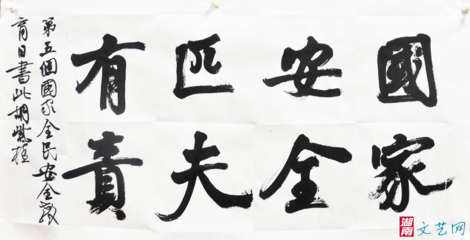 國家
安全
匹夫
有責
第五個國家全民安全教
育日書此胡紫桂
湖南
文艺网